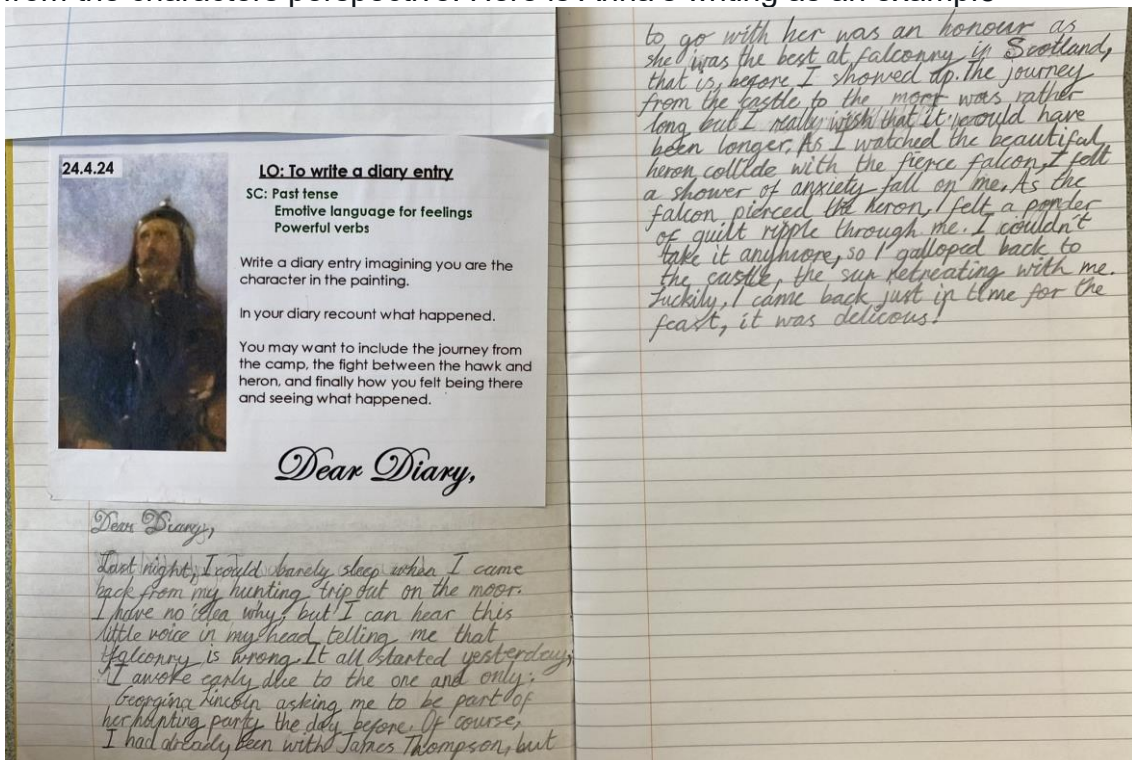 from the characters perspective. Here is Anna's writing as an example
24.4.24
LO: To write a diary entry
SC: Past tense
Emotive language for feelings
Powerful verbs
Write a diary entry imagining you are the
character in the painting.
In your diary recount what happened.
You may want to include the journey from
the camp, the fight between the hawk and
heron, and finally how you felt being there
and seeing what happened.
Dear Diary,
Dear Diary,
Last night, I could barely sleep when I came
back from my hunting trip out on the moor.
I have no idea why, but I can hear this
little voice in my head telling me that
falconry is wrong. It all started yesterday,
I awoke early due to the one and only:
Georgina Lincoln asking me to be part of
her hunting party the day before. Of course,
I had already been with James Thompson, but
to go with her was an honour as
she was the best at falconry in Scotland,
that is, before I showed up. The journey
from the castle to the moor was rather
long but I really wish that it would have
been longer. As I watched the beautiful
heron collide with the fierce falcon, I felt
a shower of anxiety fall on me. As the
falcon pierced the heron, I felt a ponder
of guilt ripple through me. I couldn't
take it anymore, so I galloped back to
the castle, the sun retreating with me.
Luckily, I came back just in time for the
feast, it was delicous!